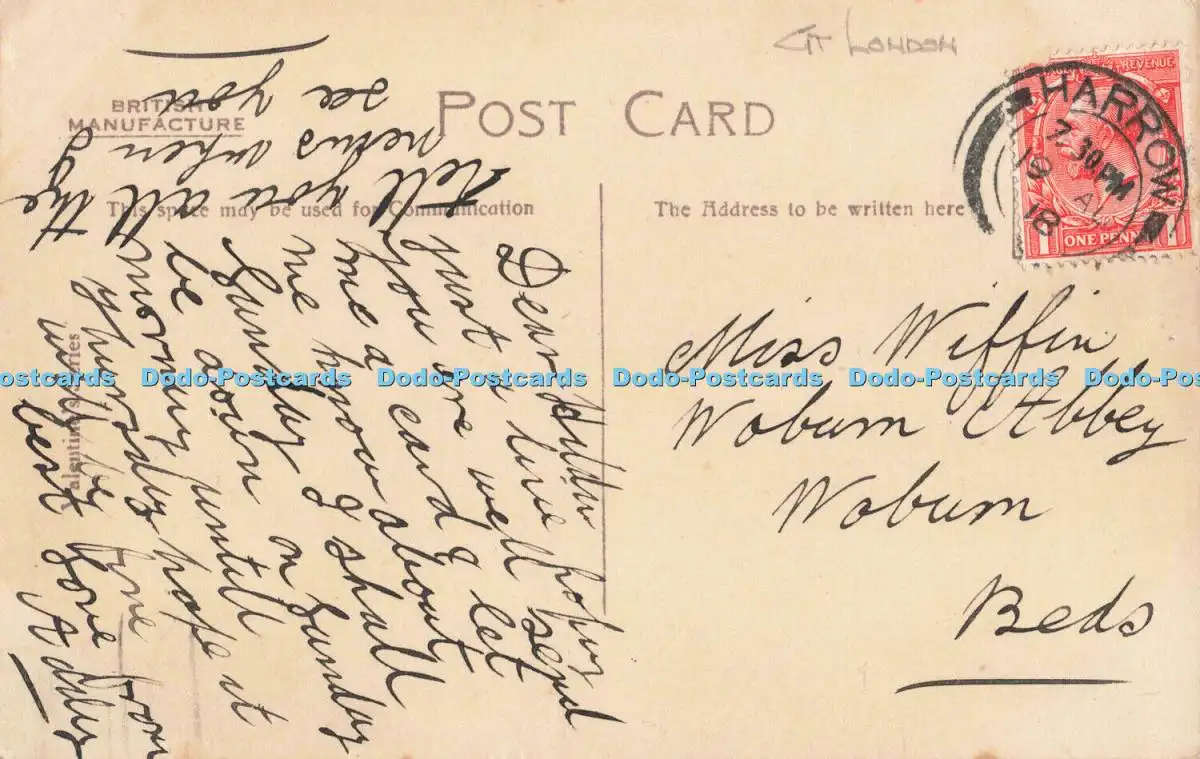 GT LONDON
BRITISH
MANUFACTURE
POST CARD
This space may be used for Communication
The Address to be written here
HARROW
7.30 PM
18
REVENUE
1 ONE PENNY 1
Miss Wiffin
Woburn Abbey
Woburn
Beds
Dear
just a line hoping
you are well send
me a card & let
me know about
Sunday I shall
be down on Sunday
morning untill
thursday hope it
will be fine from
best love
tell you all the
news when I
see you
Dodo-Postcards Dodo-Postcards Dodo-Postcards Dodo-Postcards Dodo-Postcards Dodo-Postcards